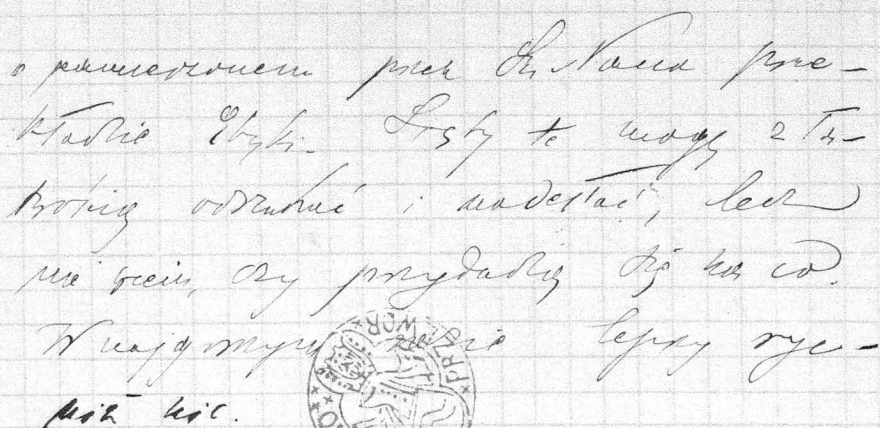 o zamierzonem przez Sz. Pana prze-
kładzie Etyki. Listy te mogę z ła-
twością odszukać i nadesłać, lecz
nie wiem, czy przydadzą się na co.
W najgorszym razie lepszy ryc-
niż nic.